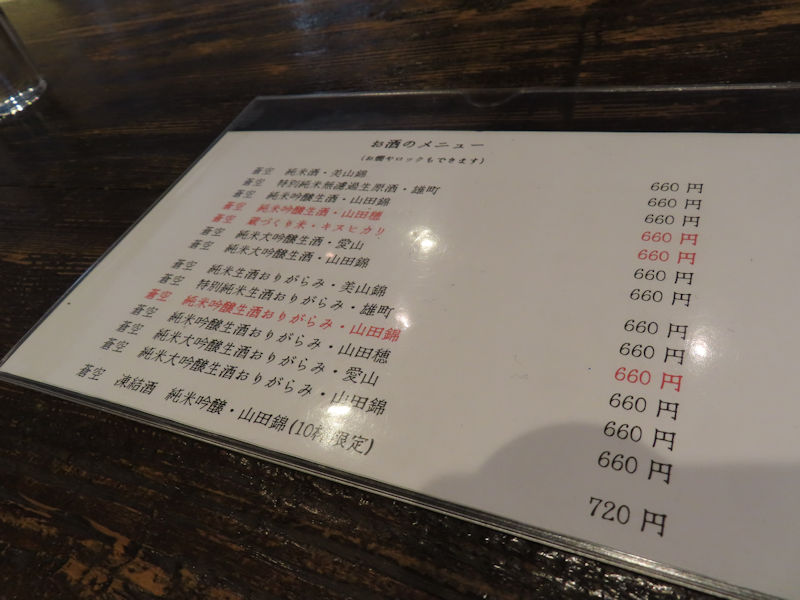 お酒のメニュー
(お燗やロックもできます)
蒼空 純米酒・美山錦 660 円
蒼空 特別純米無濾過生原酒・雄町 660 円
蒼空 純米吟醸生酒・山田錦 660 円
蒼空 純米吟醸生酒・山田穂 660 円
蒼空 蔵づくり米・キヌヒカリ 660 円
蒼空 純米大吟醸生酒・愛山 660 円
蒼空 純米大吟醸生酒・山田錦 660 円
蒼空 純米生酒おりがらみ・美山錦 660 円
蒼空 特別純米生酒おりがらみ・雄町 660 円
蒼空 純米吟醸生酒おりがらみ・山田錦 660 円
蒼空 純米吟醸生酒おりがらみ・山田穂 660 円
蒼空 純米大吟醸生酒おりがらみ・愛山 660 円
蒼空 純米大吟醸生酒おりがらみ・山田錦 660 円
蒼空 凍結酒 純米吟醸・山田錦(10杯限定) 720 円